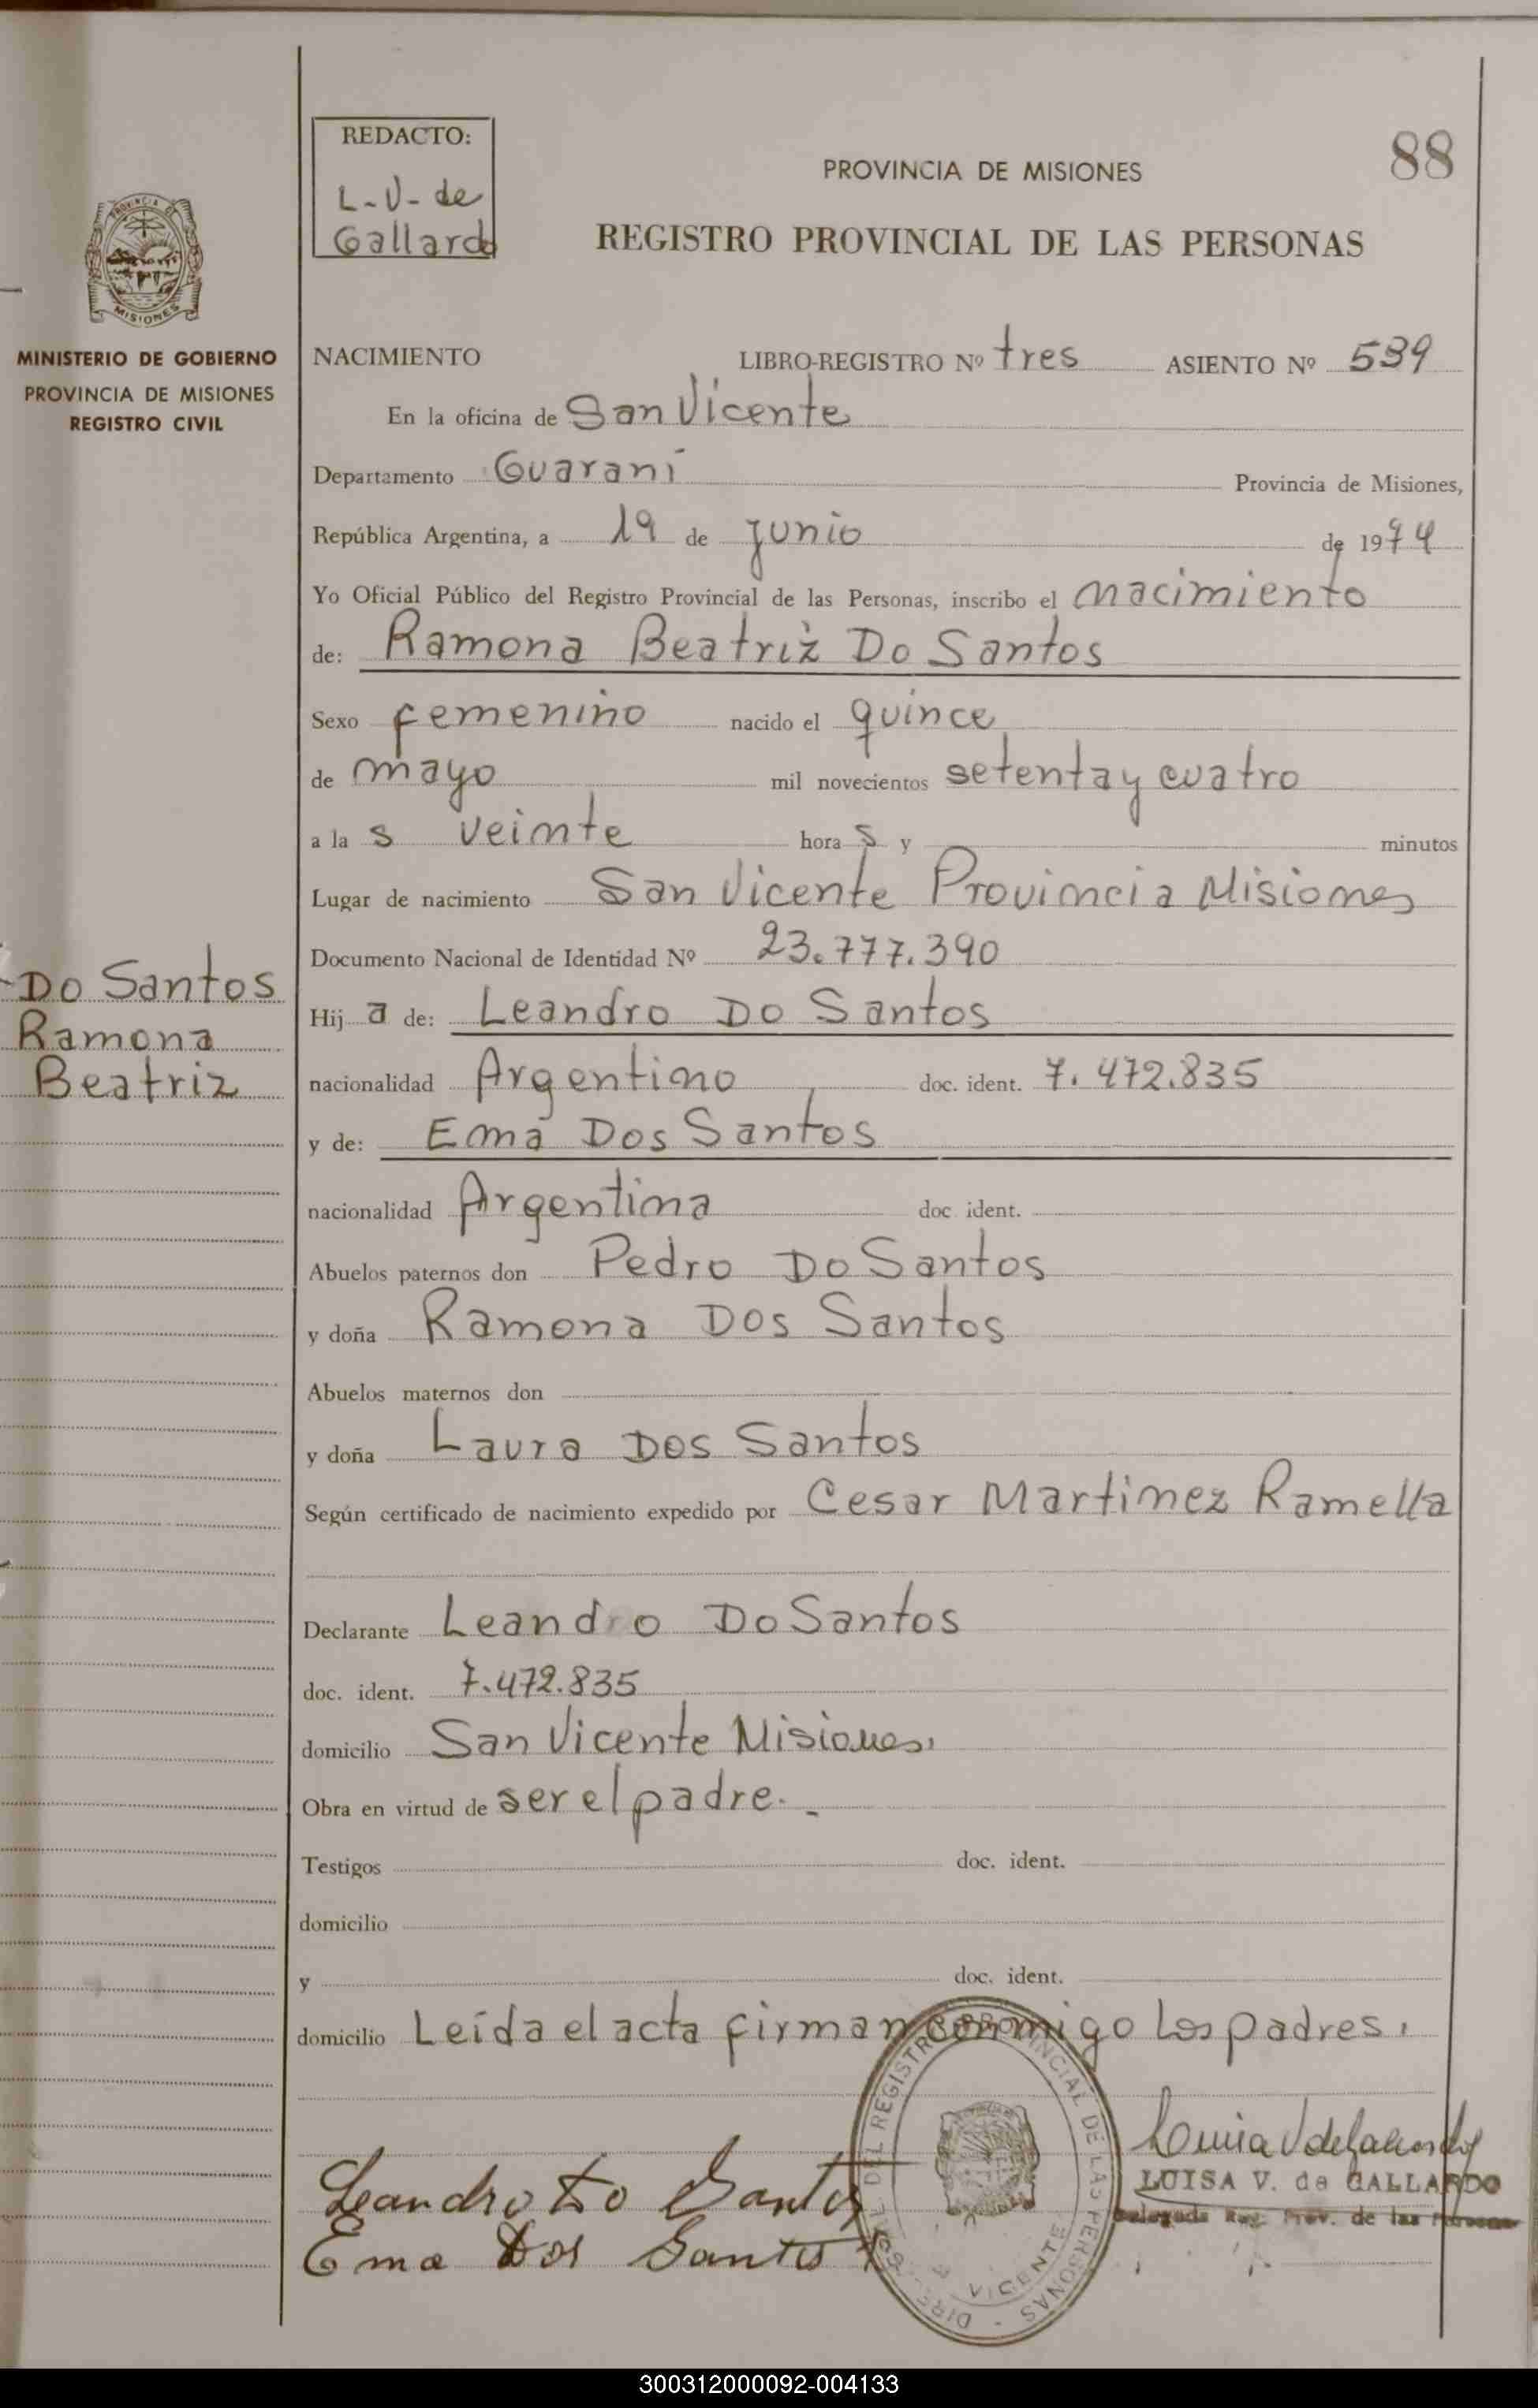 REDACTO:
L-V- de
Gallardo
88
PROVINCIA DE MISIONES
REGISTRO PROVINCIAL DE LAS PERSONAS
PROVINCIA DE
MISIONES
MINISTERIO DE GOBIERNO
PROVINCIA DE MISIONES
REGISTRO CIVIL
NACIMIENTO LIBRO-REGISTRO Nº tres ASIENTO Nº 539
En la oficina de San Vicente
Departamento Guaraní Provincia de Misiones,
República Argentina, a 19 de junio de 1974
Yo Oficial Público del Registro Provincial de las Personas, inscribo el nacimiento
de: Ramona Beatriz Do Santos
Sexo femenino nacido el quince
de mayo mil novecientos setenta y cuatro
a la s veinte hora s y minutos
Lugar de nacimiento San Vicente Provincia Misiones
Documento Nacional de Identidad Nº 23.777.390
Do Santos
Ramona
Beatriz
Hij a de: Leandro Do Santos
nacionalidad Argentino doc. ident. 7.472.835
y de: Ema Dos Santos
nacionalidad Argentina doc. ident.
Abuelos paternos don Pedro Do Santos
y doña Ramona Dos Santos
Abuelos maternos don
y doña Laura Dos Santos
Según certificado de nacimiento expedido por Cesar Martinez Ramella
Declarante Leandro Do Santos
doc. ident. 7.472.835
domicilio San Vicente Misiones.
Obra en virtud de ser el padre.-
Testigos doc. ident.
domicilio
y doc. ident.
domicilio Leída el acta firman conmigo los padres.
Leandro Do Santos
Ema Dos Santos
DEL REGISTRO PROVINCIAL DE LAS PERSONAS
VICENTE
Luisa V de Gallardo
LUISA V. de GALLARDO
Delegada Reg. Prov. de las Personas
300312000092-004133